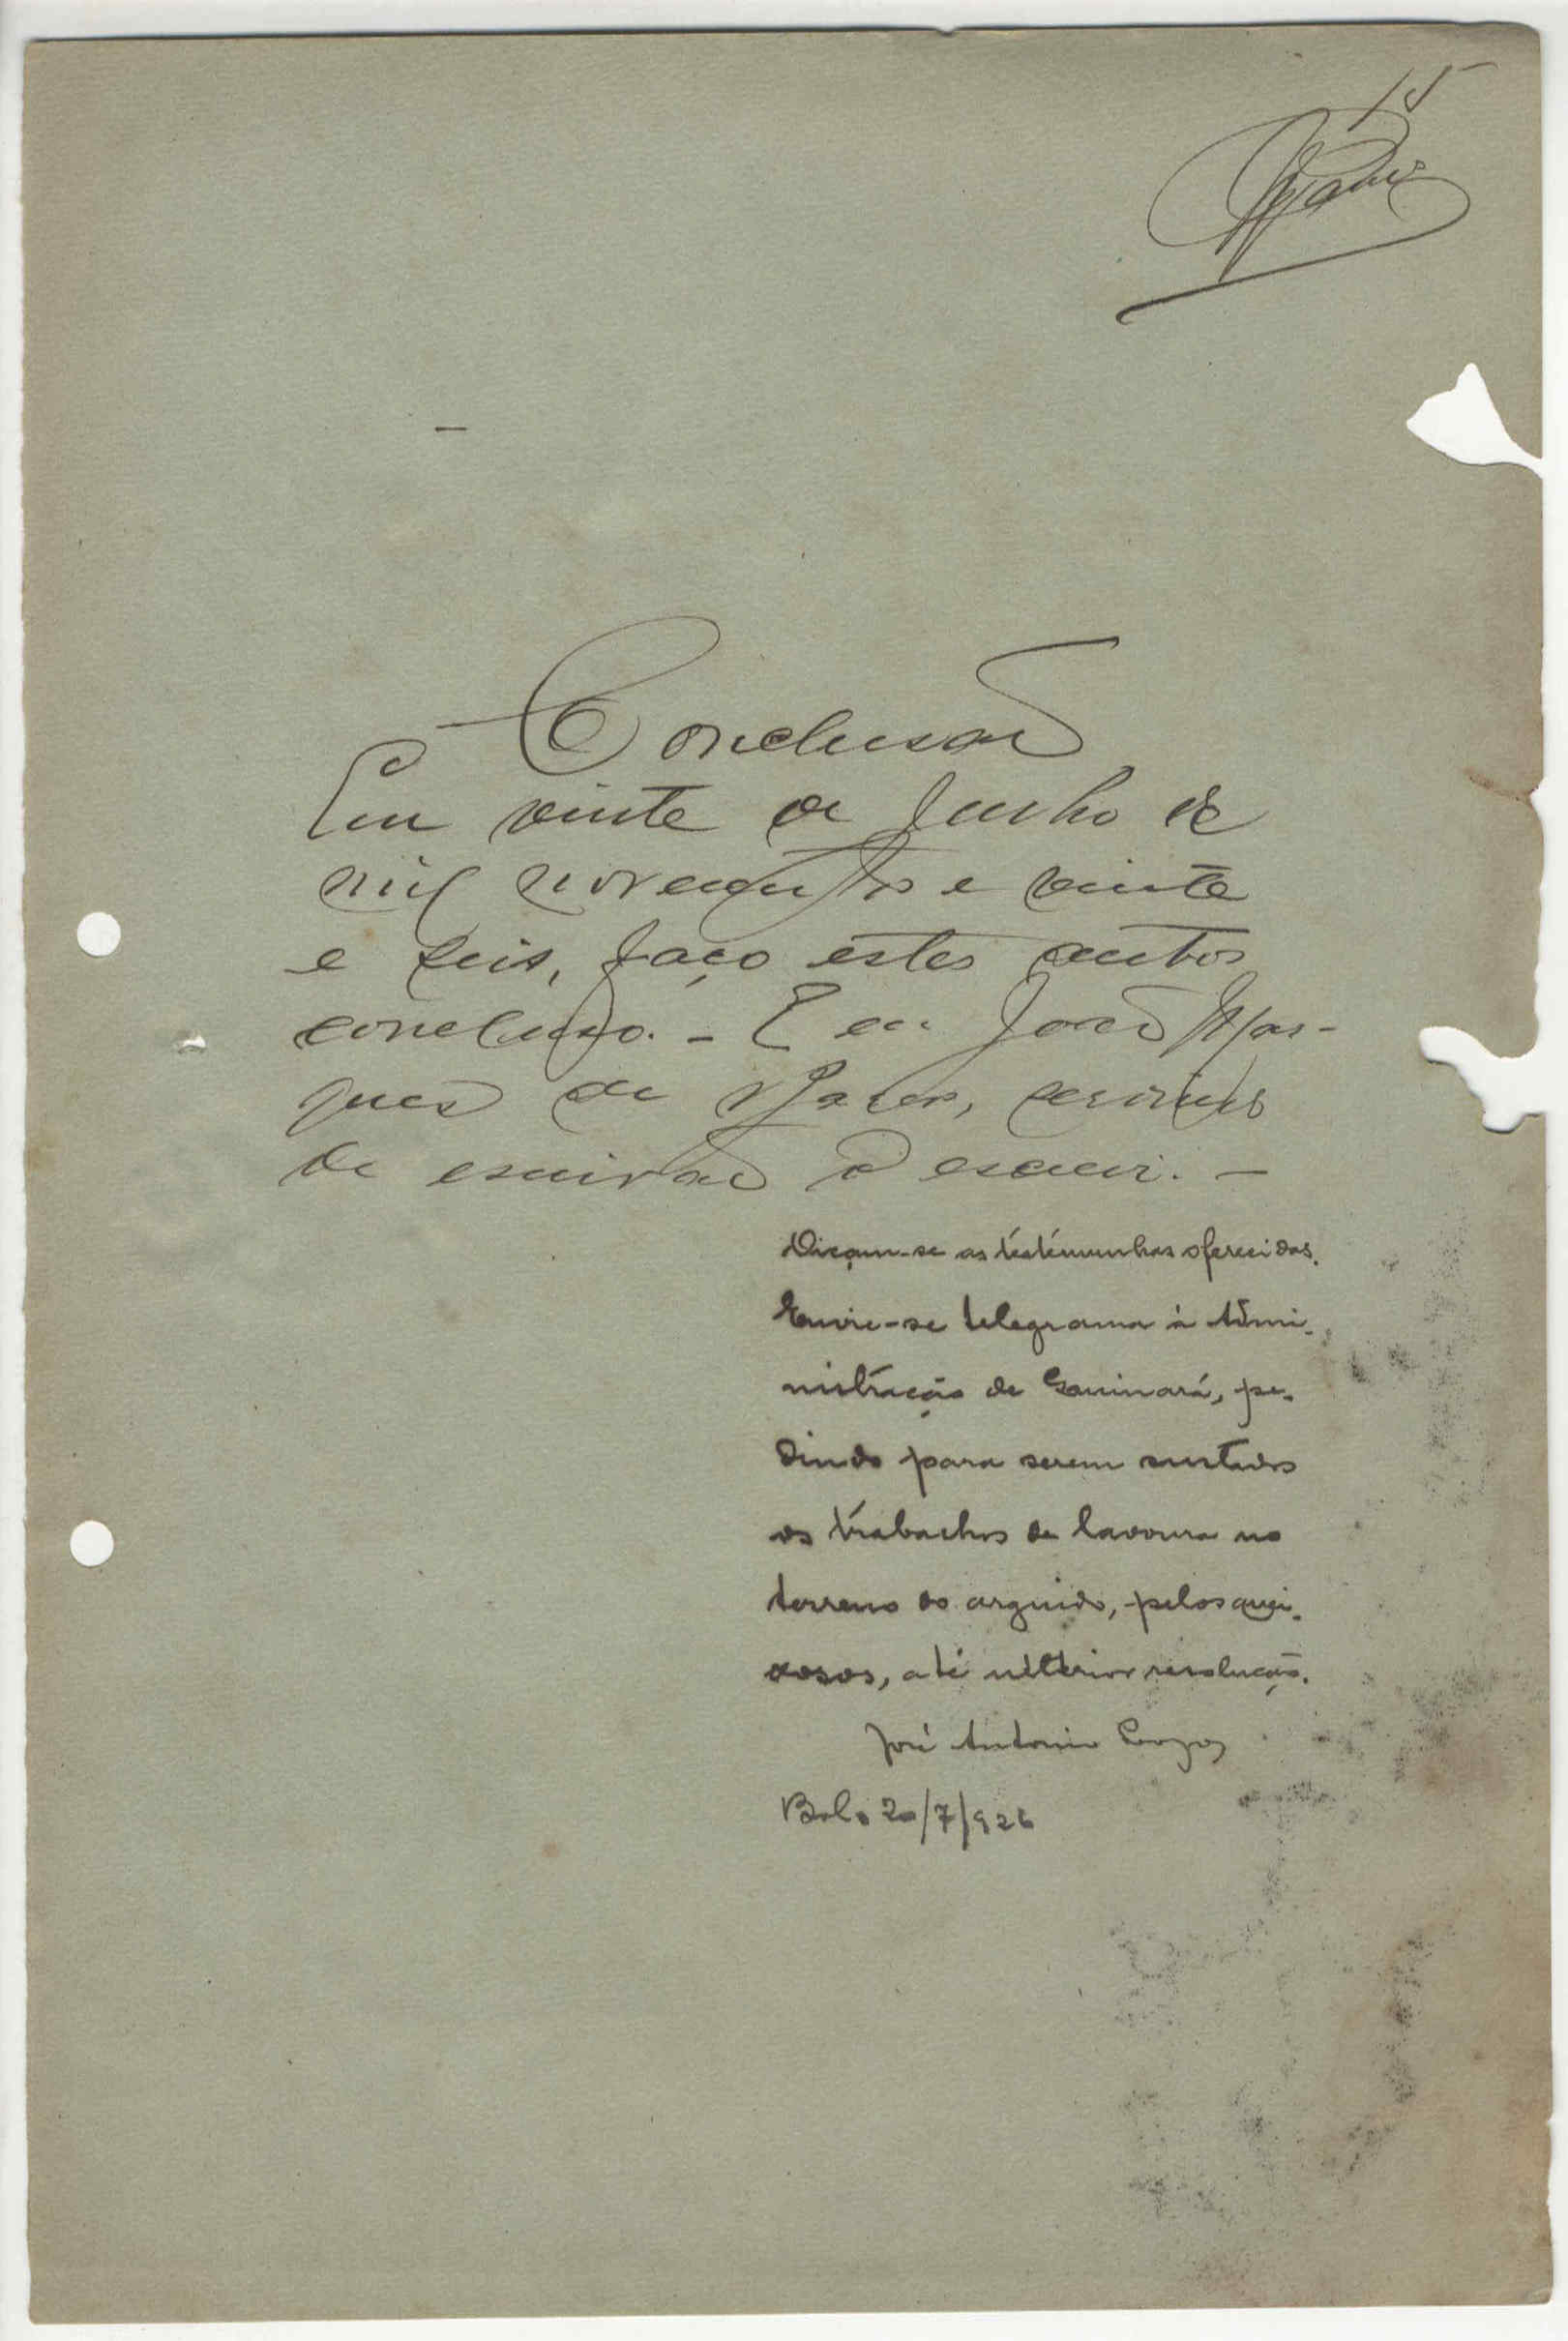 15
Conclusão
Em vinte de Junho de
mil novecentos e vinte
e seis, faço estes autos
concluso. - E eu João Mar-
ques de Barros, servindo
de escrivão o escrevi. -
Oiçam-se as testemunhas oferecidas.
Envie-se telegrama à Admi-
nistração de , pe-
dindo para serem sustados
os trabachos de lavoura no
terreno do arguido, pelos quei-
xosos, até ulterior resolução.
José Antonio
20/7/926